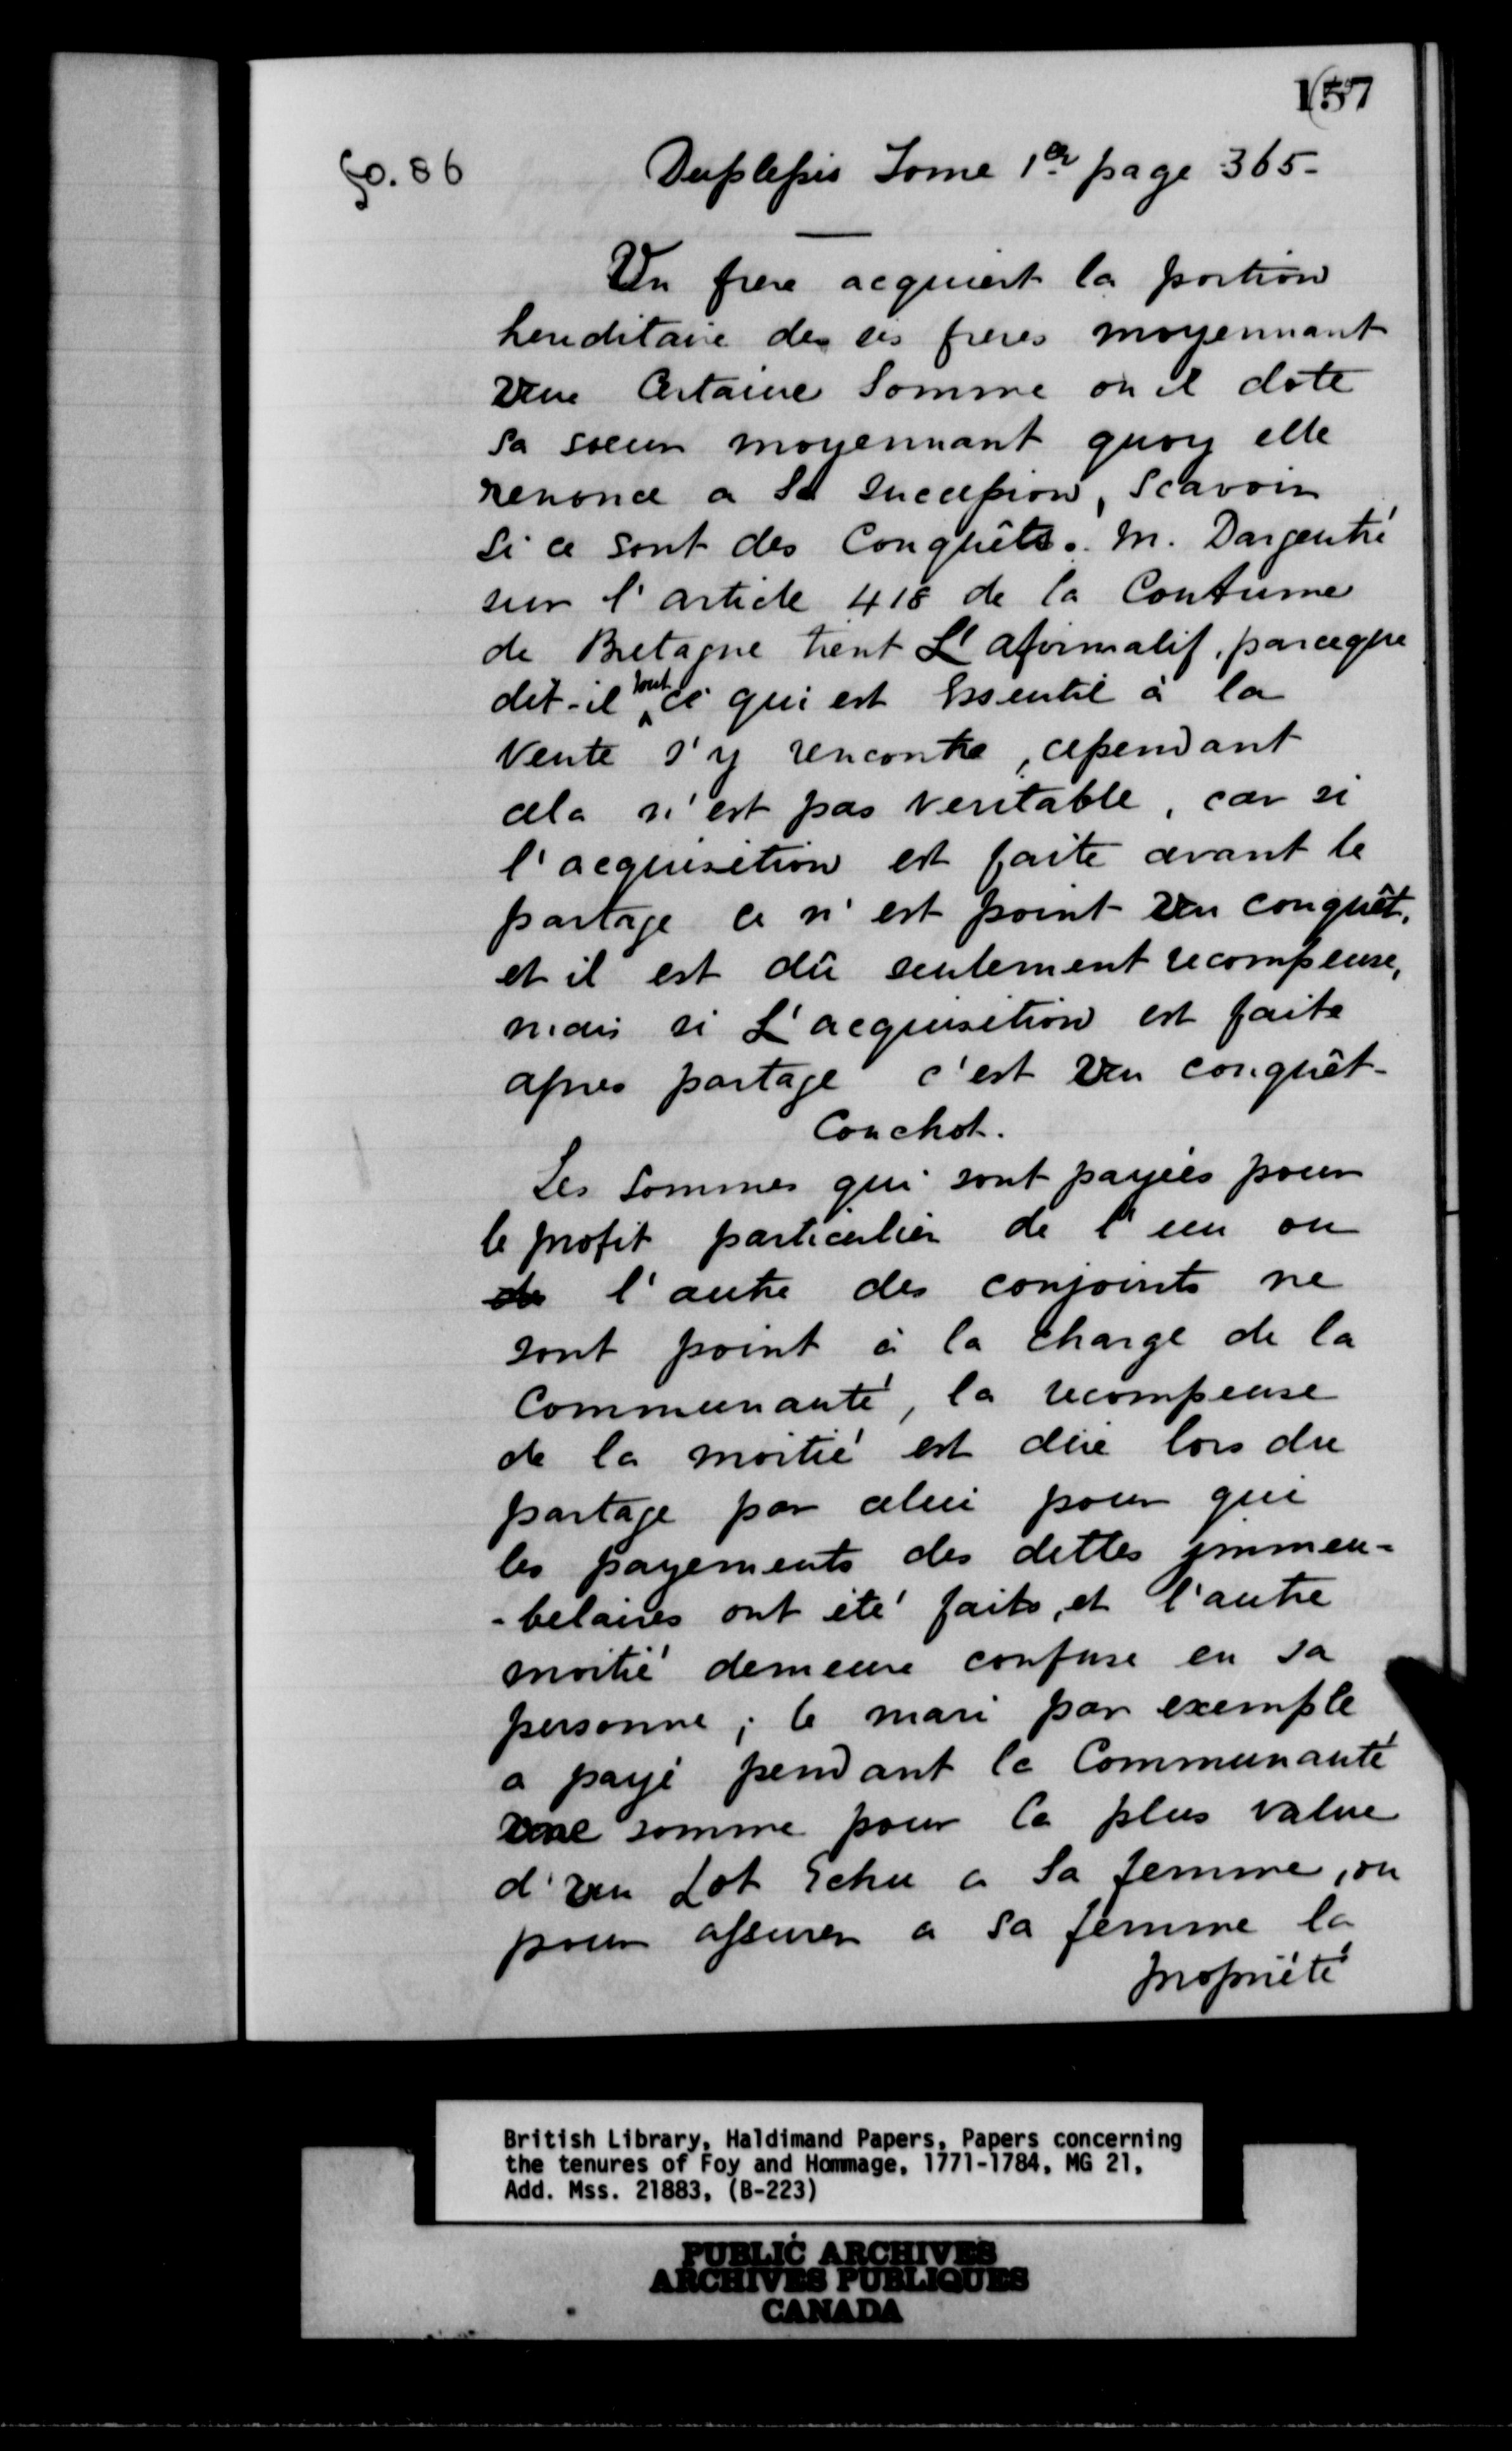 157
fo. 86
Duplessis Tome 1er page 365-
Un frere acquiert la portion
hereditaire des ses freres moyennant
Une Certaine Somme ou il dote
sa soeur moyennant quoy elle
renonce a Sa Succession, Scavoir
Si ce sont des Conquêts. M. Dargentré
sur l'article 418 de la Coutume
de Bretagne tient L'afirmatif, parceque
dit-il tout ce qui est Essentiel à la
Vente s'y rencontre, cependant
cela n'est pas veritable, car si
l'acquisition est faite avant le
partage ce n'est point Un conquêt,
et il est dû seulement recompense,
mais si L'acquisition est faite
apres partage c'est Un conquêt-
Couchot.
Les Sommes qui sont payées pour
le profit particulier de l'un ou
de l'autre des conjoints ne
sont point à la charge de la
Communauté, la recompense
de la moitié est düe lors du
partage par celui pour qui
les payements des dettes immeu-
-belaires ont été faits, et l'autre
moitié demeure confuse en sa
personne; le mari par exemple
a payé pendant la Communauté
Une somme pour la plus value
d'Un Lot Echu a Sa femme, ou
pour assurer a sa femme la
propriété
British Library, Haldimand Papers, Papers concerning
the tenures of Foy and Hommage, 1771-1784, MG 21,
Add. Mss. 21883, (B-223)
PUBLIC ARCHIVES
ARCHIVES PUBLIQUES
CANADA